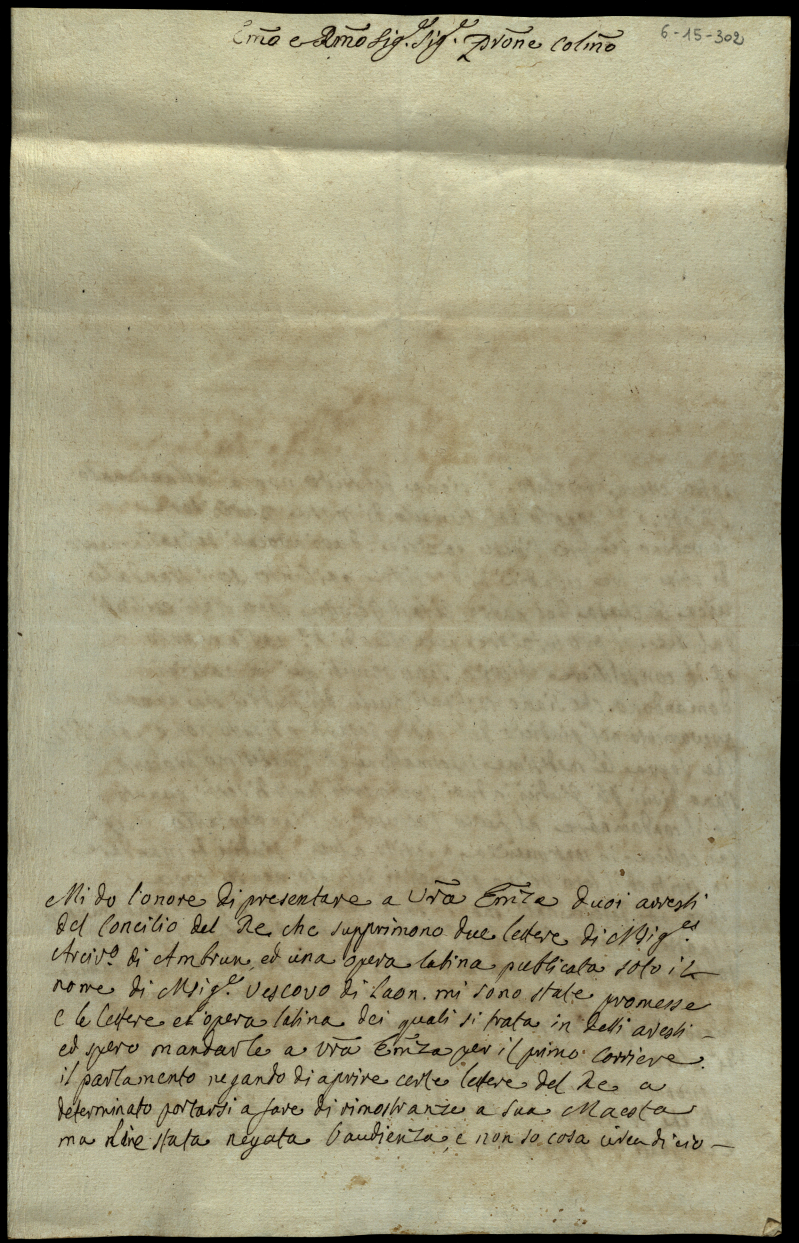 Em̃o e Rm̃o Sig.r Sig.r Prõne Colm̃o
6-15-302
Mi do l'onore di presentare a Vrã Em̃za duoi arresti
del Concilio del Re che supprimono due lettere di Msig.es
Arciv.o di Ambrun, ed una opera latina publicata soto il
nome di Msig.e Vescovo di Laon. mi sono state promesse
e le lettere et opera latina dei quali si trata in detti aresti
ed spero mandarle a Vrã Em̃za per il primo Corriere.
il parlamento negando di aprire certe lettere del Re a
determinato portarsi a fare di rimostranze a sua Maesta
ma stata negata l'audienza, e non so cosa